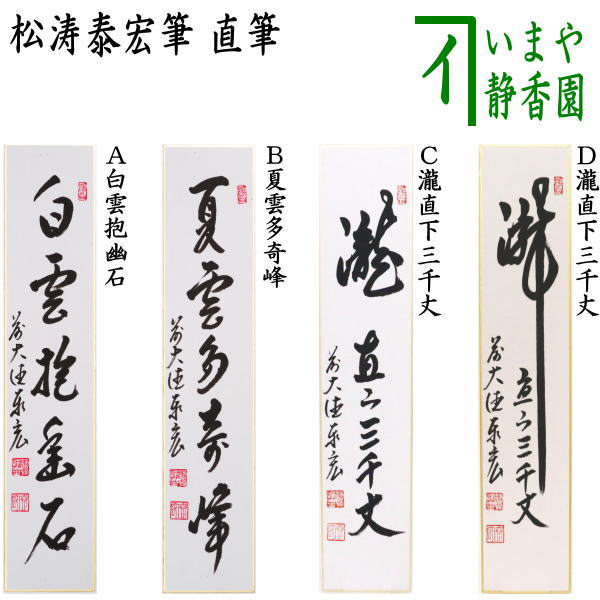 松涛泰宏筆 直筆
いまや
静香園
A白雲抱幽石
白雲抱幽石
前大徳泰宏
B夏雲多奇峰
夏雲多奇峰
前大徳泰宏
C瀧直下三千丈
瀧直下三千丈
前大徳泰宏
D瀧直下三千丈
瀧直下三千丈
前大徳泰宏